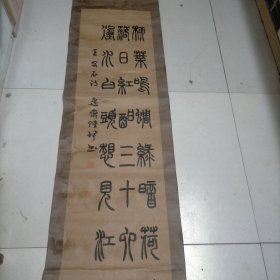 柳葉鳴蜩綠暗荷
日紅酣三十六
水白頭想見江
王安石詩